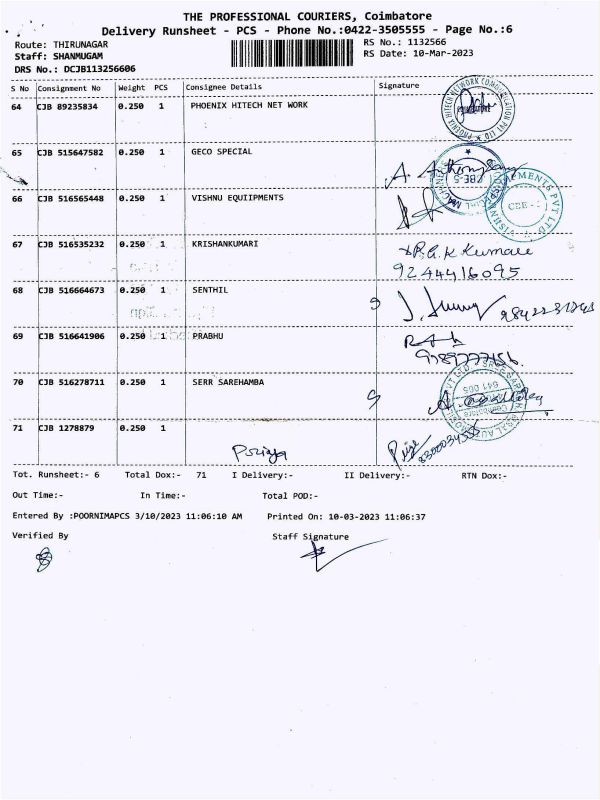 THE PROFESSIONAL COURIERS, Coimbatore
Delivery Runsheet - PCS - Phone No.:0422-3505555 - Page No.:6
Route: THIRUNAGAR
RS No.: 1132566
Staff: SHANMUGAM
RS Date: 10-Mar-2023
DRS No.: DCJB113256606
S No Consignment No Weight PCS Consignee Details Signature
64 CJB 89235834 0.250 1 PHOENIX HITECH NET WORK
65 CJB 515647582 0.250 1 GECO SPECIAL
66 CJB 516565448 0.250 1 VISHNU EQUIIPMENTS
67 CJB 516535232 0.250 1 KRISHANKUMARI
9244416095
68 CJB 516664673 0.250 1 SENTHIL
69 CJB 516641906 0.250 1 PRABHU
70 CJB 516278711 0.250 1 SERR SAREHAMBA
71 CJB 1278879 0.250 1
Priya
Tot. Runsheet:- 6 Total Dox:- 71 I Delivery:- II Delivery:- RTN Dox:-
Out Time:- In Time:- Total POD:-
Entered By :POORNIMAPCS 3/10/2023 11:06:10 AM Printed On: 10-03-2023 11:06:37
Verified By Staff Signature